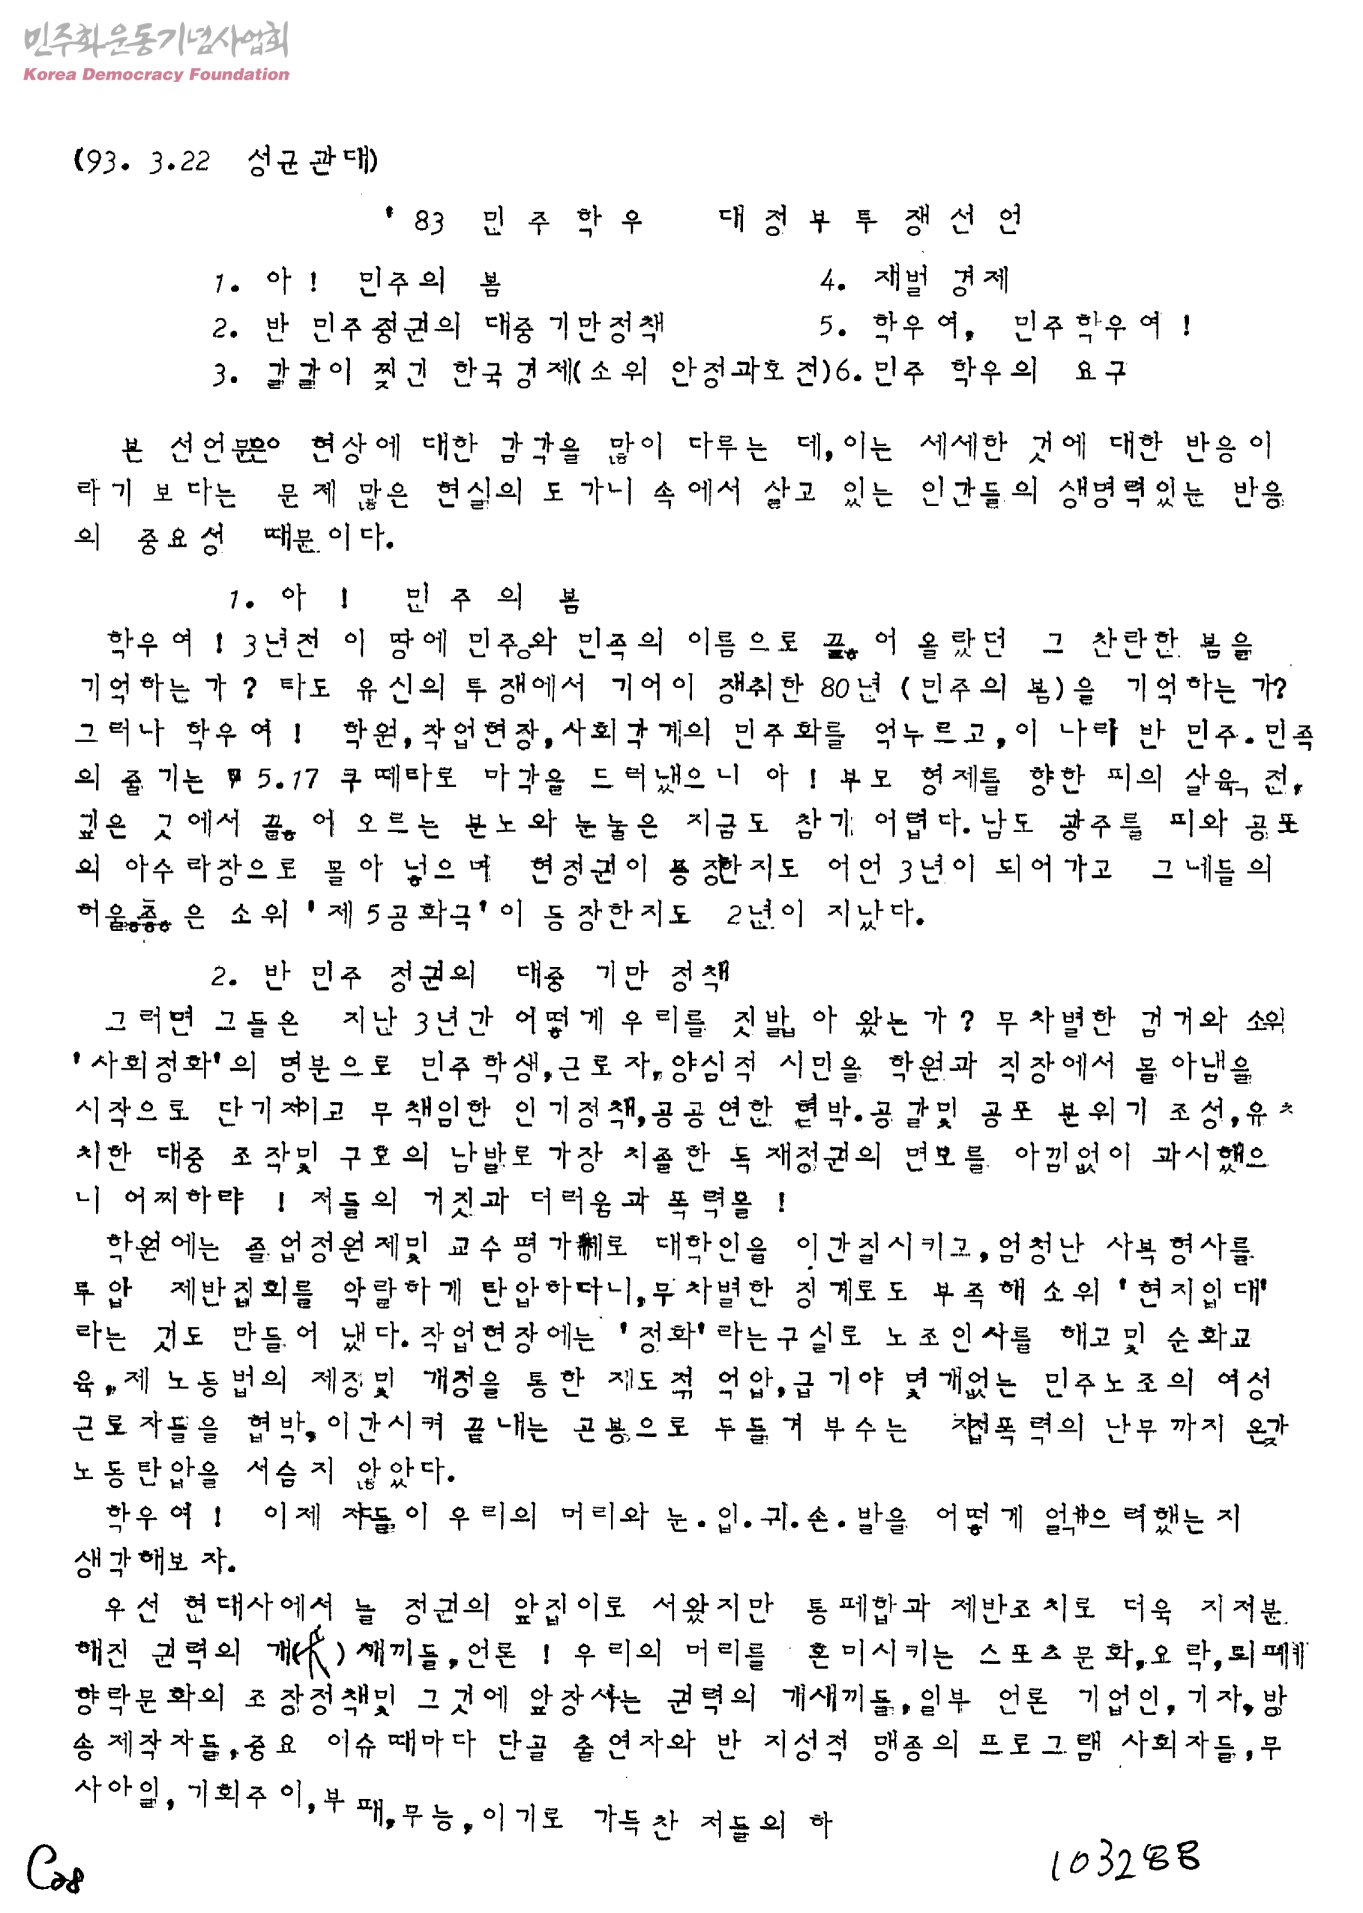 민주화운동기념사업회
Korea Democracy Foundation
(93. 3.22 성균관대)
'83 민주학우 대정부투쟁선언
1. 아! 민주의 봄 4. 재벌 경제
2. 반 민주정권의 대중기만정책 5. 학우여, 민주학우여!
3. 갈갈이 찢긴 한국경제(소위 안정과호전)6.민주 학우의 요구
본 선언문은 현상에 대한 감각을 많이 다루는 데,이는 세세한 것에 대한 반응이
라기 보다는 문제 많은 현실의 도가니 속에서 살고 있는 인간들의 생명력있는 반응
의 중요성 때문이다.
1. 아! 민주의 봄
학우여! 3년전 이 땅에 민주와 민족의 이름으로 끓어 올랐던 그 찬란한 봄을
기억하는가? 타도 유신의 투쟁에서 기어이 쟁취한 80년 (민주의 봄)을 기억하는가?
그러나 학우여! 학원,작업현장,사회각계의 민주화를 억누르고,이 나라 반 민주.민족
의 줄기는 5.17 쿠떼타로 마각을 드러냈으니 아! 부모 형제를 향한 피의 살육전,
깊은 곳에서 끓어 오르는 분노와 눈눌은 지금도 참기 어렵다.남도 광주를 피와 공포
의 아수라장으로 몰아 넣으며 현정권이 등장한지도 어언 3년이 되어가고 그네들의
허울좋은 소위 '제5공화국'이 등장한지도 2년이 지났다.
2. 반 민주 정권의 대중 기만 정책
그러면 그들은 지난 3년간 어떻게 우리를 짓밟아 왔는가? 무차별한 검거와 소위
'사회정화'의 명분으로 민주학생,근로자,양심적 시민을 학원과 직장에서 몰아냄을
시작으로 단기적이고 무책임한 인기정책,공공연한 협박.공갈및 공포 분위기 조성,유
치한 대중 조작및 구호의 남발로 가장 치졸한 독재정권의 면모를 아낌없이 과시했으
니 어찌하랴 ! 저들의 거짓과 더러움과 폭력을 !
학원에는 졸업정원제및 교수평가제로 대학인을 이간질시키고,엄청난 사복형사를
투압 제반집회를 악랄하게 탄압하다니,무차별한 징계로도 부족해 소위 '현지입대'
라는 것도 만들어 냈다.작업현장에는 '정화'라는구실로 노조인사를 해고및 순화교
육,제 노동법의 제정및 개정을 통한 제도적 억압,급기야 몇개없는 민주노조의 여성
근로자들을 협박,이간시켜 끝내는 곤봉으로 두들겨 부수는 직접폭력의 난무까지 온갖
노동탄압을 서슴지 않았다.
학우여! 이제 저들이 우리의 머리와 눈.입.귀.손.발을 어떻게 얽으려했는지
생각해보자.
우선 현대사에서 늘 정권의 앞집이로 서왔지만 통폐합과 제반조치로 더욱 지저분
해진 권력의 개(犬)새끼들,언론! 우리의 머리를 혼미시키는 스포츠문화,오락,퇴폐
향락문화의 조장정책및 그것에 앞장서는 권력의 개새끼들,일부 언론 기업인,기자,방
송제작자들,중요 이슈때마다 단골 출연자와 반 지성적 맹종의 프로그램 사회자들,무
사아일,기회주이,부패,무능,이기로 가득찬 저들의 하
103288